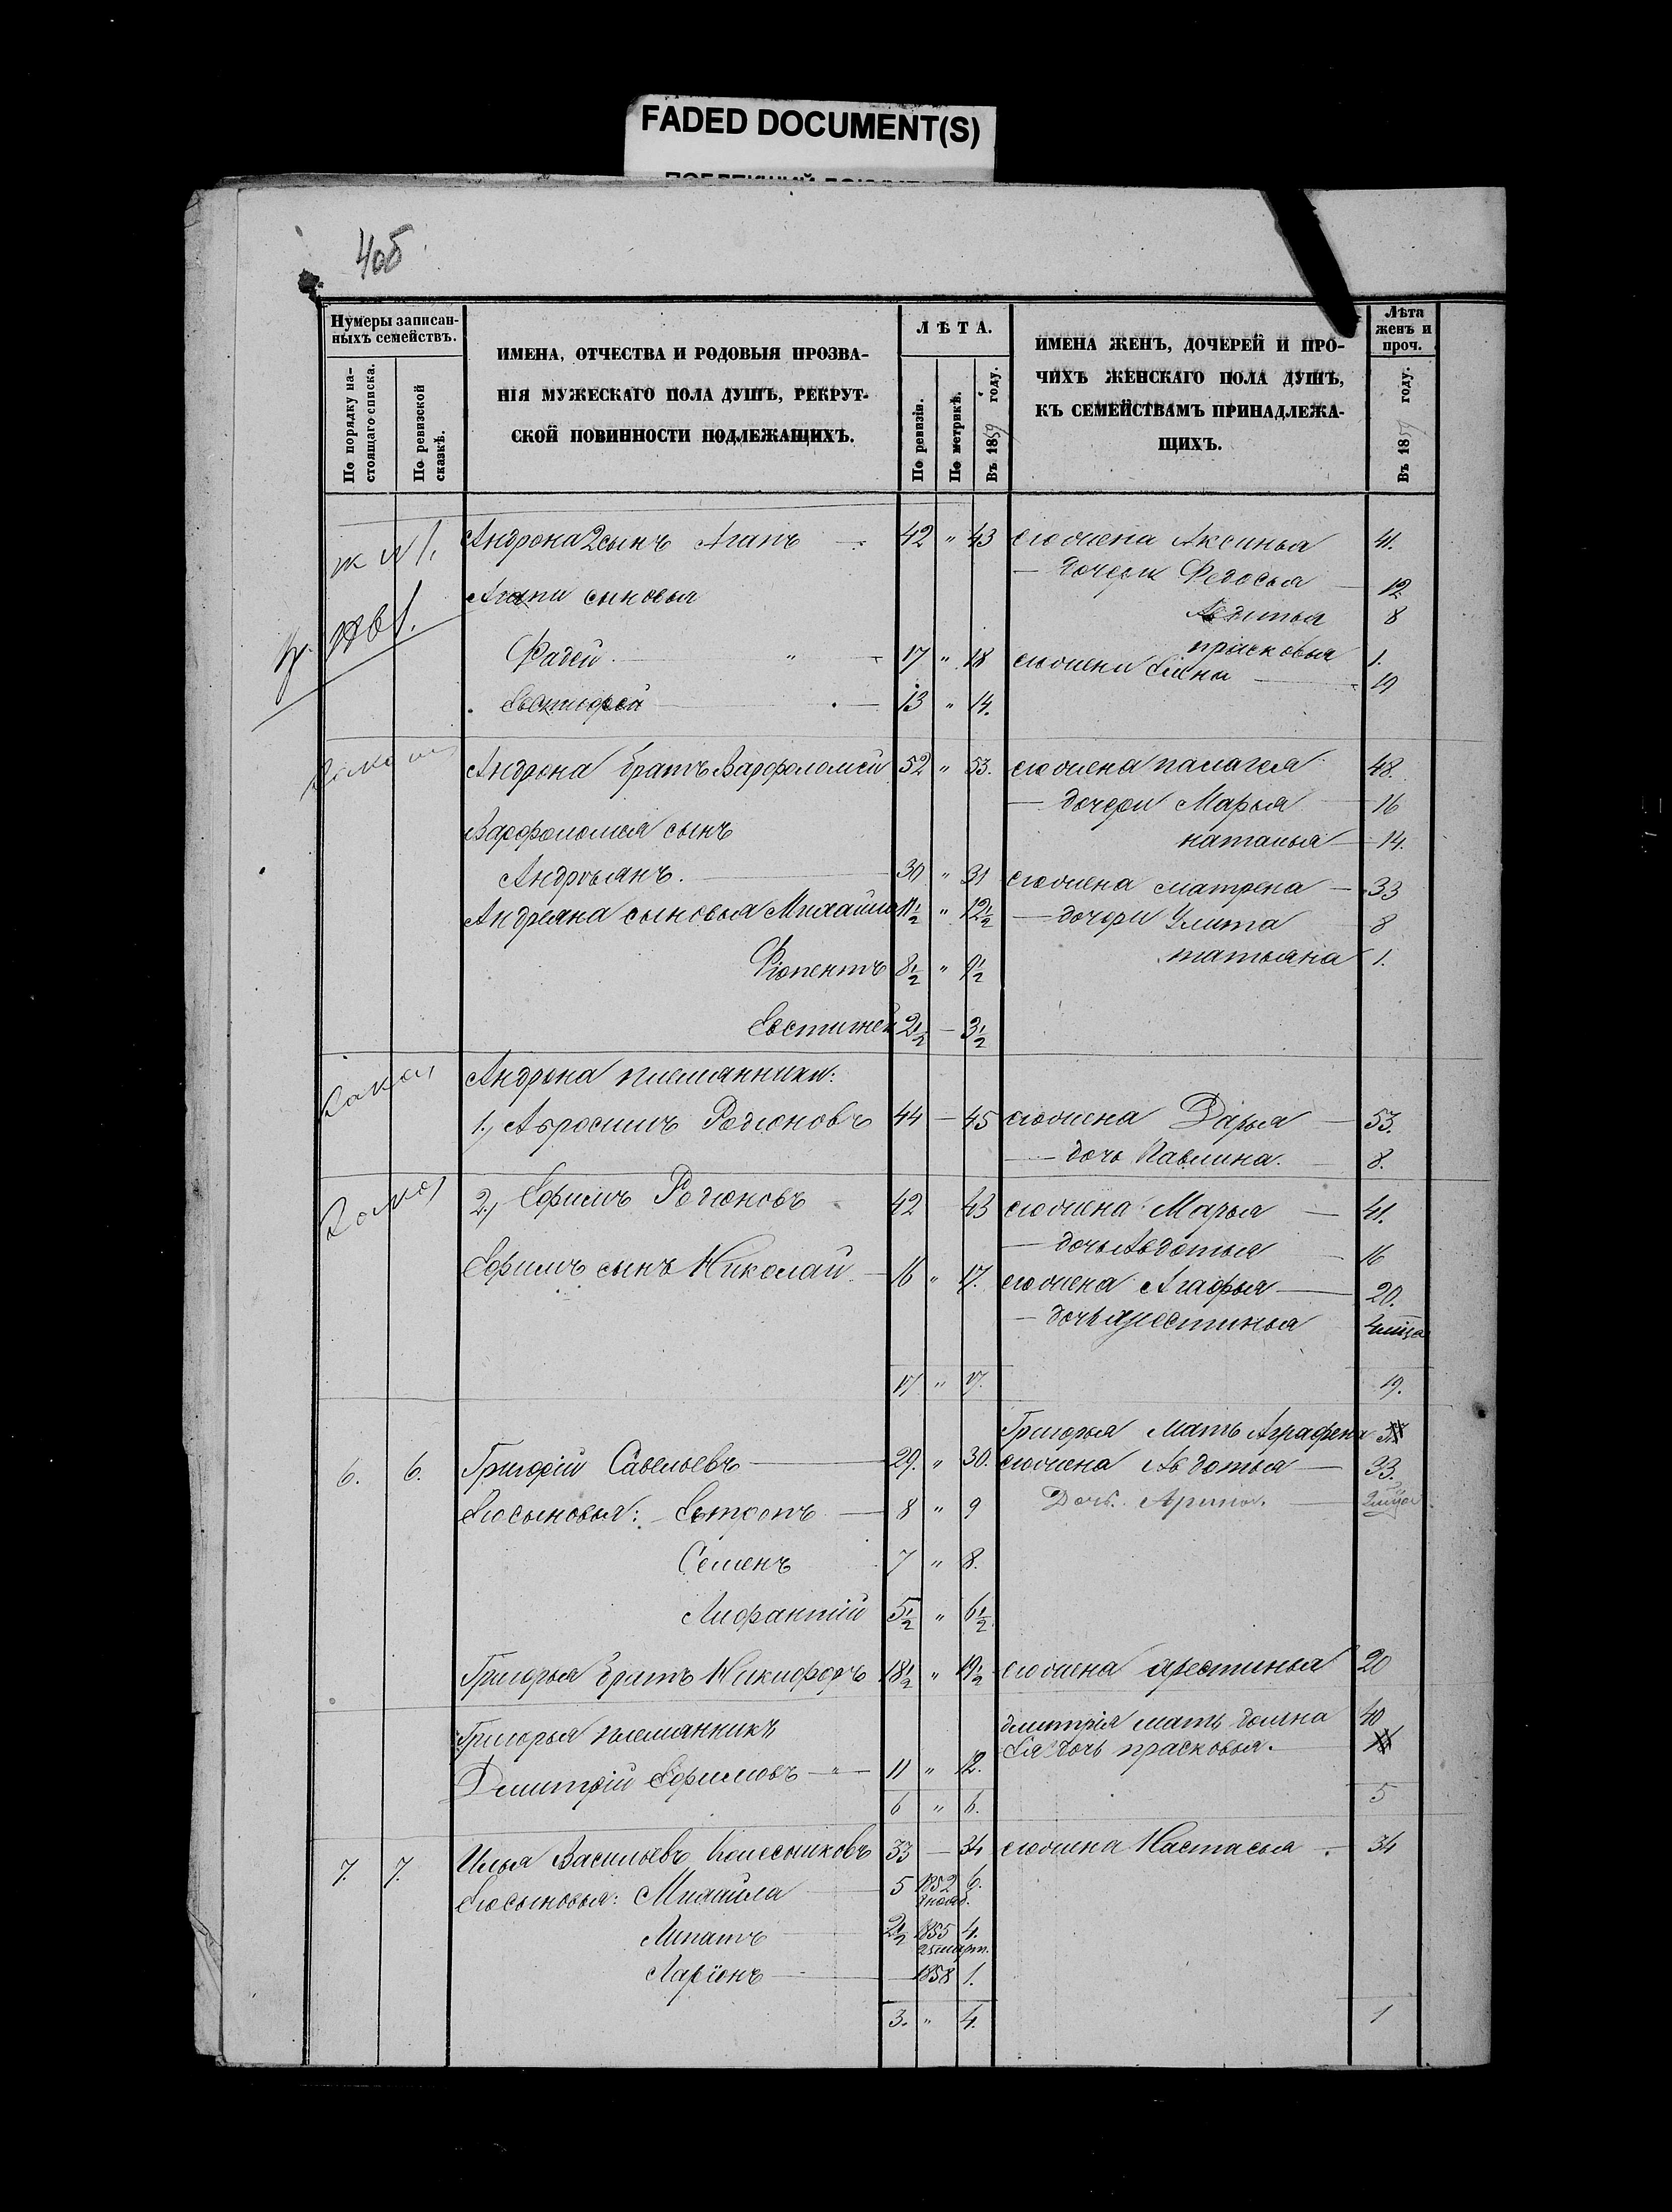 FADED DOCUMENT(S)
4об
Нумеры записан-
ныхъ семействъ.
По порядку на-
стоящаго списка.
По ревизской
сказкѣ.
ИМЕНА, ОТЧЕСТВА И РОДОВЫЯ ПРОЗВА-
НІЯ МУЖЕСКАГО ПОЛА ДУШЪ, РЕКРУТ-
СКОЙ ПОВИННОСТИ ПОДЛЕЖАЩИХЪ.
ЛѢТА.
По ревизіи.
По метрикѣ.
Въ 1859 году.
ИМЕНА ЖЕНЪ, ДОЧЕРЕЙ И ПРО-
ЧИХЪ ЖЕНСКАГО ПОЛА ДУШЪ,
КЪ СЕМЕЙСТВАМЪ ПРИНАДЛЕЖА-
ЩИХЪ.
Лѣта
женъ и
проч.
Въ 1859 году.
Андрона 2 сынъ Агапъ 42 " 43 его жена Аксинья 41.
— дочери Федосья 12
Агапи сыновья
8
прасковья 1.
Фадей " 17 " 18 его жена 19
13 " 14.
Андрона братъ Варфоломей 52 " 53. его жена палагея 48.
— дочери Марья 16
Варфоломея сынъ
наталья 14.
Андреянъ. 30 " 31 его жена матрена 33
Андреяна сыновья Михайло 11½ " 12½ — дочери Улита 8
татьяна 1.
8½ " 9½
Евстигней 2½ — 3½
Андрона племянники:
1, Абросимъ Родіоновъ 44 — 45 его жена Дарья 53.
— дочь Павлина. 8.
2, Ефимъ Родіоновъ 42 43 его жена Марья 41.
— дочь Авдотья 16
Ефимъ сынъ Николай 16 " 17. его жена Агафья 20.
— дочь
17 " 17. 19.
Григорья мать Аграфена
6. 6. Григорій Савельевъ 29. " 30. его жена Авдотья 33.
Его сыновья: 8 " 9 Дочь Арина.
Семенъ 7 " 8.
5½ " 6½
Григорья братъ Никифоръ 18½ " 19½ его жена 20
Григорья племянникъ
дмитрія мать домна 40
Ея дочь прасковья.
Дмитрій Ефимовъ " 11 " 12.
6 " 6. 5
7. 7. Илья Васильевъ Колесниковъ 33 — 34 его жена Настасья 34
Его сыновья: Михайла 5 1852 6.
Липатъ 2½ 1855 4.
25 март.
Ларіонъ 1858 1.
3. " 4. 1